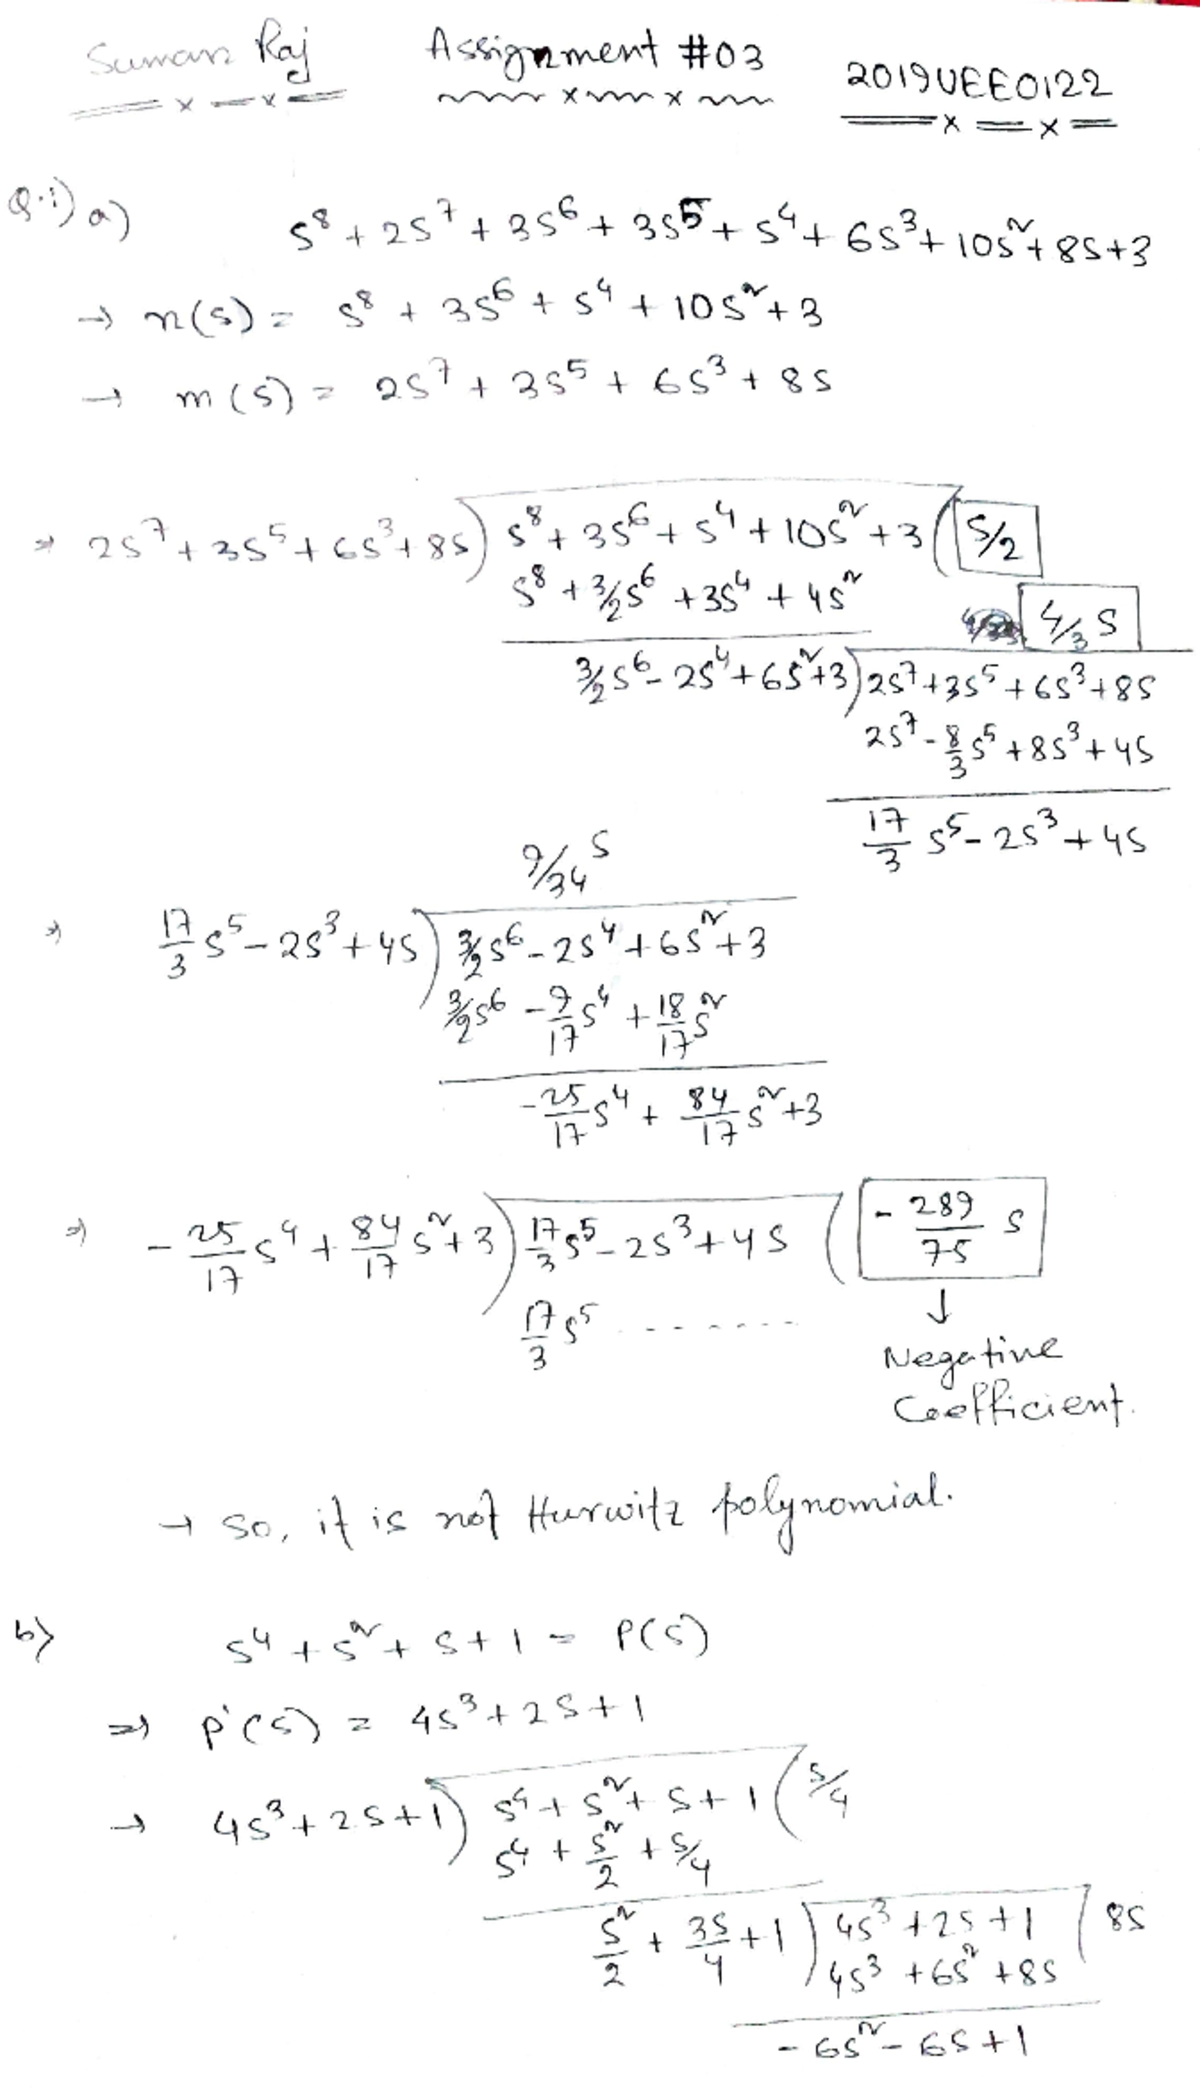 Suman Raj Assignment #03 2019UEE0122
Q.1) a) s⁸ + 2s⁷ + 3s⁶ + 3s⁵ + s⁴ + 6s³ + 10s² + 8s + 3
→ n(s) = s⁸ + 3s⁶ + s⁴ + 10s² + 3
→ m(s) = 2s⁷ + 3s⁵ + 6s³ + 8s
⇒ 2s⁷ + 3s⁵ + 6s³ + 8s ) s⁸ + 3s⁶ + s⁴ + 10s² + 3 ( s/2
s⁸ + 3/2 s⁶ + 3s⁴ + 4s²
4/3 s
3/2 s⁶ - 2s⁴ + 6s² + 3 ) 2s⁷ + 3s⁵ + 6s³ + 8s
2s⁷ - 8/3 s⁵ + 8s³ + 4s
17/3 s⁵ - 2s³ + 4s
9/34 s
⇒ 17/3 s⁵ - 2s³ + 4s ) 3/2 s⁶ - 2s⁴ + 6s² + 3
3/2 s⁶ - 9/17 s⁴ + 18/17 s²
- 25/17 s⁴ + 84/17 s² + 3
⇒ - 25/17 s⁴ + 84/17 s² + 3 ) 17/3 s⁵ - 2s³ + 4s ( - 289/75 s
17/3 s⁵ - - - - - - - ↓
Negative
Coefficient.
→ so, it is not Hurwitz polynomial.
b) s⁴ + s² + s + 1 = P(s)
⇒ P'(s) = 4s³ + 2s + 1
→ 4s³ + 2s + 1 ) s⁴ + s² + s + 1 ( s/4
s⁴ + s²/2 + s/4
s²/2 + 3s/4 + 1 ) 4s³ + 2s + 1 ( 8s
4s³ + 6s² + 8s
- 6s² - 6s + 1